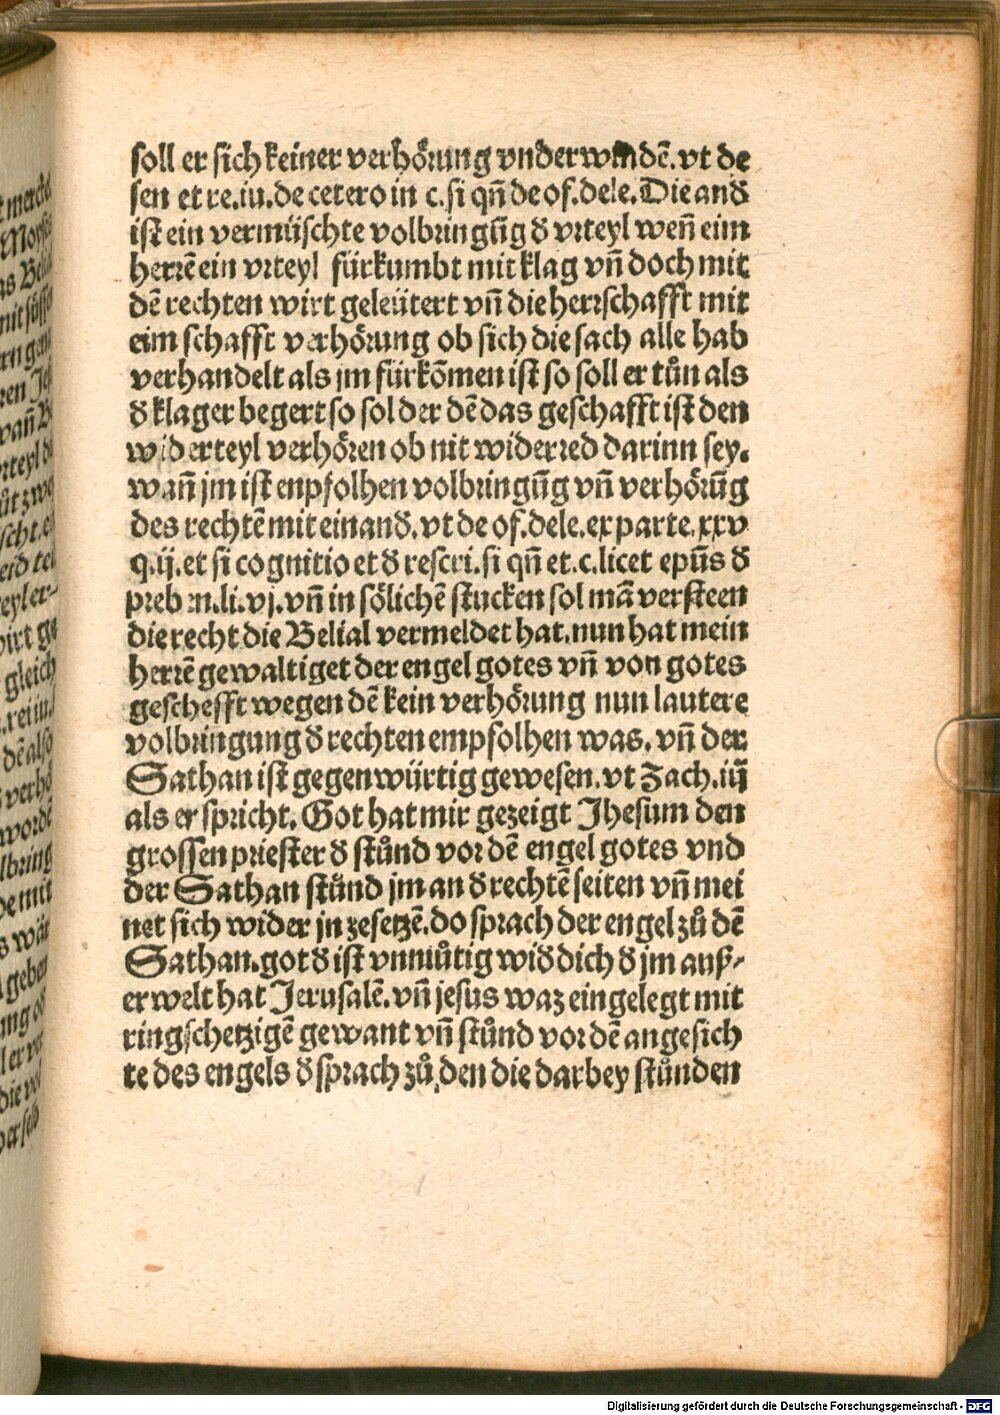 soll er sich keiner verhörung vnderwindē. vt de
sen et re. iu. de cetero in c. si qn̄ de of. dele. Die and̄
ist ein vermüschte volbringūg d̄ vrteyl wen̄ eim
herrē ein vrteyl fürkumbt mit klag vn̄ doch mit
dē rechten wirt geleütert vn̄ die herrschafft mit
eim schafft verhörung ob sich die sach alle hab
verhandelt als jm fürkōmen ist so soll er tůn als
d̄ klager begert so sol der dē das geschafft ist den
widerteyl verhören ob nit widerred darinn sey.
wan̄ jm ist enpfolhen volbringūg vn̄ verhörūg
des rechtē mit einand̄. vt de of. dele. ex parte. xxv
q. ij. et si cognitio et d̄ rescri. si qn̄ et. c. licet epūs d̄
preben. li. vj. vn̄ in sölichē stucken sol mā versteen
die recht die Belial vermeldet hat. nun hat mein
herrē gewaltiget der engel gotes vn̄ von gotes
geschefft wegen dē kein verhörung nun lautere
volbringung d̄ rechten empfolhen was. vn̄ der
Sathan ist gegenwürtig gewesen. vt Zach. iij
als er spricht. Got hat mir gezeigt Jhesum den
grossen priester d̄ stůnd vor dē engel gotes vnd
der Sathan stůnd jm an d̄ rechtē seiten vn̄ mei
net sich wider jn zesetzē. do sprach der engel zů dē
Sathan. got d̄ ist vnmůtig wid̄ dich d̄ jm auß⸗
erwelt hat Jerusalē. vn̄ jesus waz eingelegt mit
ringschetzigē gewant vn̄ stůnd vor dē angesich
te des engels d̄ sprach zů den die darbey stůnden
Digitalisierung gefördert durch die Deutsche Forschungsgemeinschaft - DFG